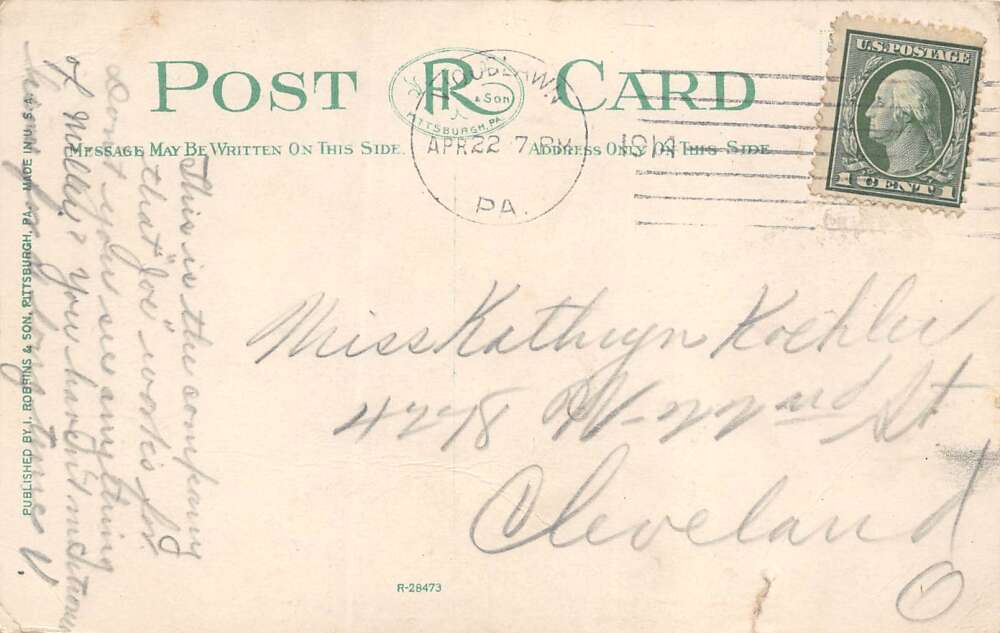 POST CARD
IR & SON
PITTSBURGH, PA.
MESSAGE MAY BE WRITTEN ON THIS SIDE.
ADDRESS ONLY ON THIS SIDE
WOODLAWN
APR 22 7 PM 1914
PA.
U.S. POSTAGE
1 CENT 1
This is the company
that "Joe" works for.
Don't you see anything
of Nellie? You haven't mentioned
her for a long time V.
Miss Kathryn Koehler
4278 W-22nd St
Cleveland
O
PUBLISHED BY I. ROBBINS & SON, PITTSBURGH, PA. MADE IN U.S.A.
R-28473